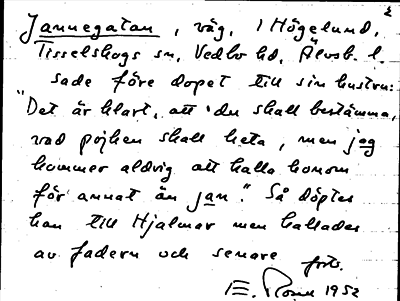 2
Jannegatan, väg, i Högelund,
Tisselskogs sn, Vedbo hd, Älvsb. l.
sade före dopet till sin hustru:
"Det är klart, att du skall bestämma,
vad pojken skall heta, men jag
kommer aldrig att kalla honom
för annat än jan." Så döptes
han till Hjalmar men kallades
av fadern och senare forts.
E. 1952